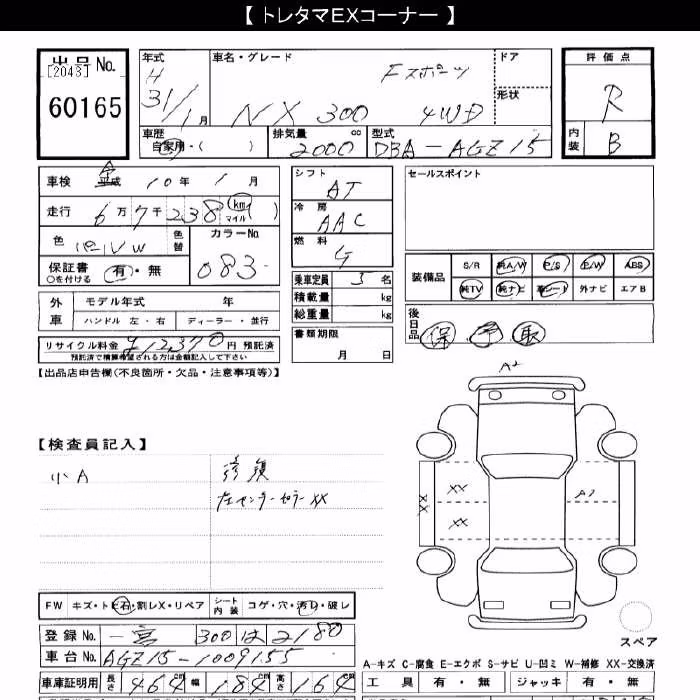 【 トレタマEXコーナー 】
出品No.
[2043]
60165
年式
H
31/1月
車名・グレード
Fスポーツ
NX 300 4WD
ドア
形状
評価点
R
内装
B
車歴
自家用・( )
排気量 cc
2000
型式
DBA-AGZ15
車検 平成 10年 1月
走行 6万7千238 km マイル( )
色
色替
カラーNo.
083
保証書 有・無
○を付ける
シフト
AT
冷房
AAC
燃料
G
乗車定員 5名
積載量 kg
総重量 kg
書類期限
月 日
セールスポイント
装備品
S/R 純A/W P/S P/W ABS
純TV 純ナビ 革シート 外ナビ エアB
外車
モデル年式 年
ハンドル 左・右 ディーラー・並行
リサイクル料金 ¥12,370円 預託済
預託済で精算希望される方は金額記入して下さい
後日品
保 予 取
【出品店申告欄(不良箇所・欠品・注意事項等)】
A2
【検査員記入】
小A
修復
左センターピラーXX
XX
XX
XX
A1
FW キズ・トビ石・割レX・リペア
シート内装 コゲ・穴・汚レ・破レ
スペア
登録No. 一宮 300 は 2180
車台No. AGZ15-1009155
A-キズ C-腐食 E-エクボ S-サビ U-凹ミ W-補修 XX-交換済
車庫証明用 長さ 464cm 幅 184cm 高さ 164cm
工具 有・無 ジャッキ 有・無